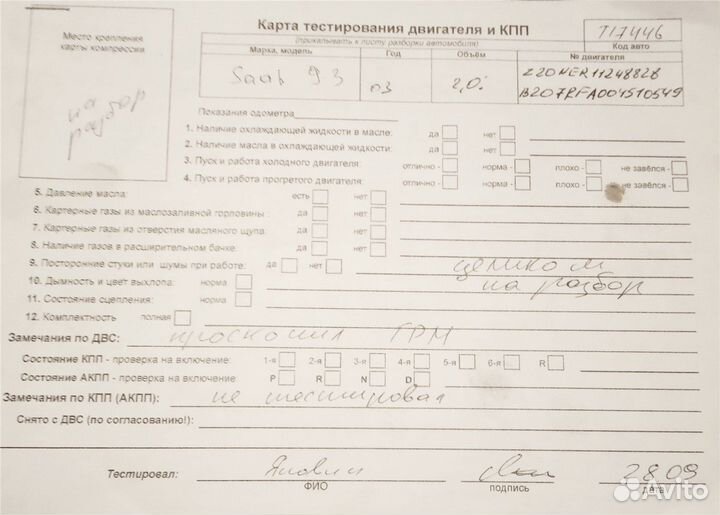 Карта тестирования двигателя и КПП
(прикалывать к листу разборки автомобиля)
T17446
Код авто
Место крепления
карты компрессии
на
разбор
Марка, модель Год Объём № двигателя
Saab 93 03 2,0i Z20NER11248828
B207RFA004510549
Показания одометра
1. Наличие охлаждающей жидкости в масле: да нет
2. Наличие масла в охлаждающей жидкости: да нет
3. Пуск и работа холодного двигателя: отлично - норма - плохо - не завёлся -
4. Пуск и работа прогретого двигателя: отлично - норма - плохо - не завёлся -
5. Давление масла: есть нет
6. Картерные газы из маслозаливной горловины : да нет
7. Картерные газы из отверстия масляного щупа: да нет
8. Наличие газов в расширительном бачке: да нет
9. Посторонние стуки или шумы при работе: да нет целиком
10. Дымность и цвет выхлопа: норма на разбор
11. Состояние сцепления: норма
12. Комплектность полная
Замечания по ДВС: проскочил ГРМ
Состояние КПП - проверка на включение: 1-я 2-я 3-я 4-я 5-я 6-я R
Состояние АКПП - проверка на включение: P R N D
Замечания по КПП (АКПП): не тестировал
Снято с ДВС (по согласованию!):
Тестировал: 28.09
ФИО подпись дата
Avito